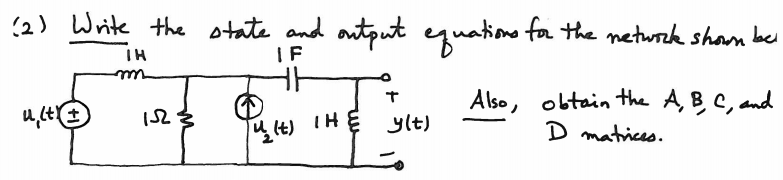 (2) Write the state and output equations for the network shown be
1H
1F
u₁(t)
+
1Ω
u₂(t)
1H
+
y(t)
−
Also, obtain the A, B, C, and
D matrices.